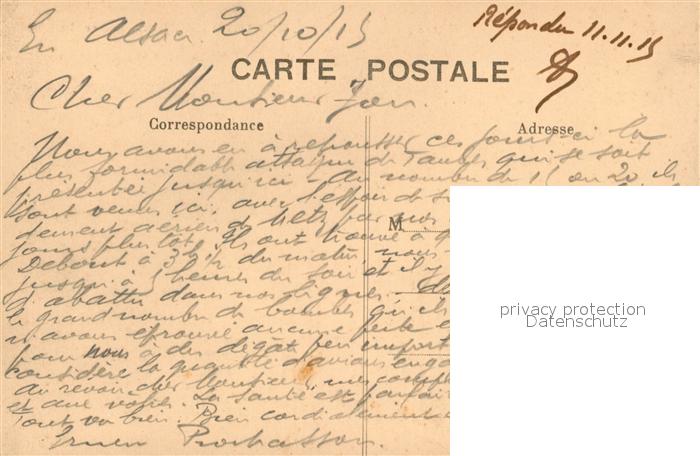 En Alsace 20/10/15
Répondu 11.11.15
CARTE POSTALE
Cher Monsieur
Correspondance
Adresse
Nous avons eu à repousser ces jours-ci la
plus formidable attaque de Taubes qui se soit
présentée jusqu'ici. Au nombre de 15 ou 20 ils
sont venus ici, avec l'espoir de
dement aérien de Metz par nos
jours plus tôt. Ils ont trouvé à
M
Debout à 3h½ du matin, nous
jusqu'à 5 heures du soir et il y
d'abattu dans nos lignes.
le grand nombre de bombes qu'ils
n'avons éprouvé aucune perte
pour nous a des dégâts peu import
considère la quantité d'avions engag
Au revoir cher Monsieur, mes compl
et aux vôtres. La santé est parfaite
Tout va bien. Bien cordialement
privacy protection
Datenschutz